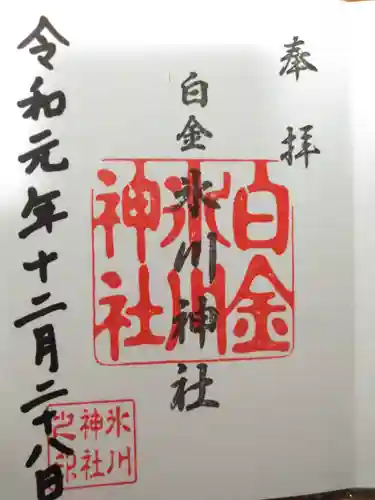 奉拝
白金
氷川神社
白金
氷川
神社
令和元年十二月二十八日
氷川
神社
之印